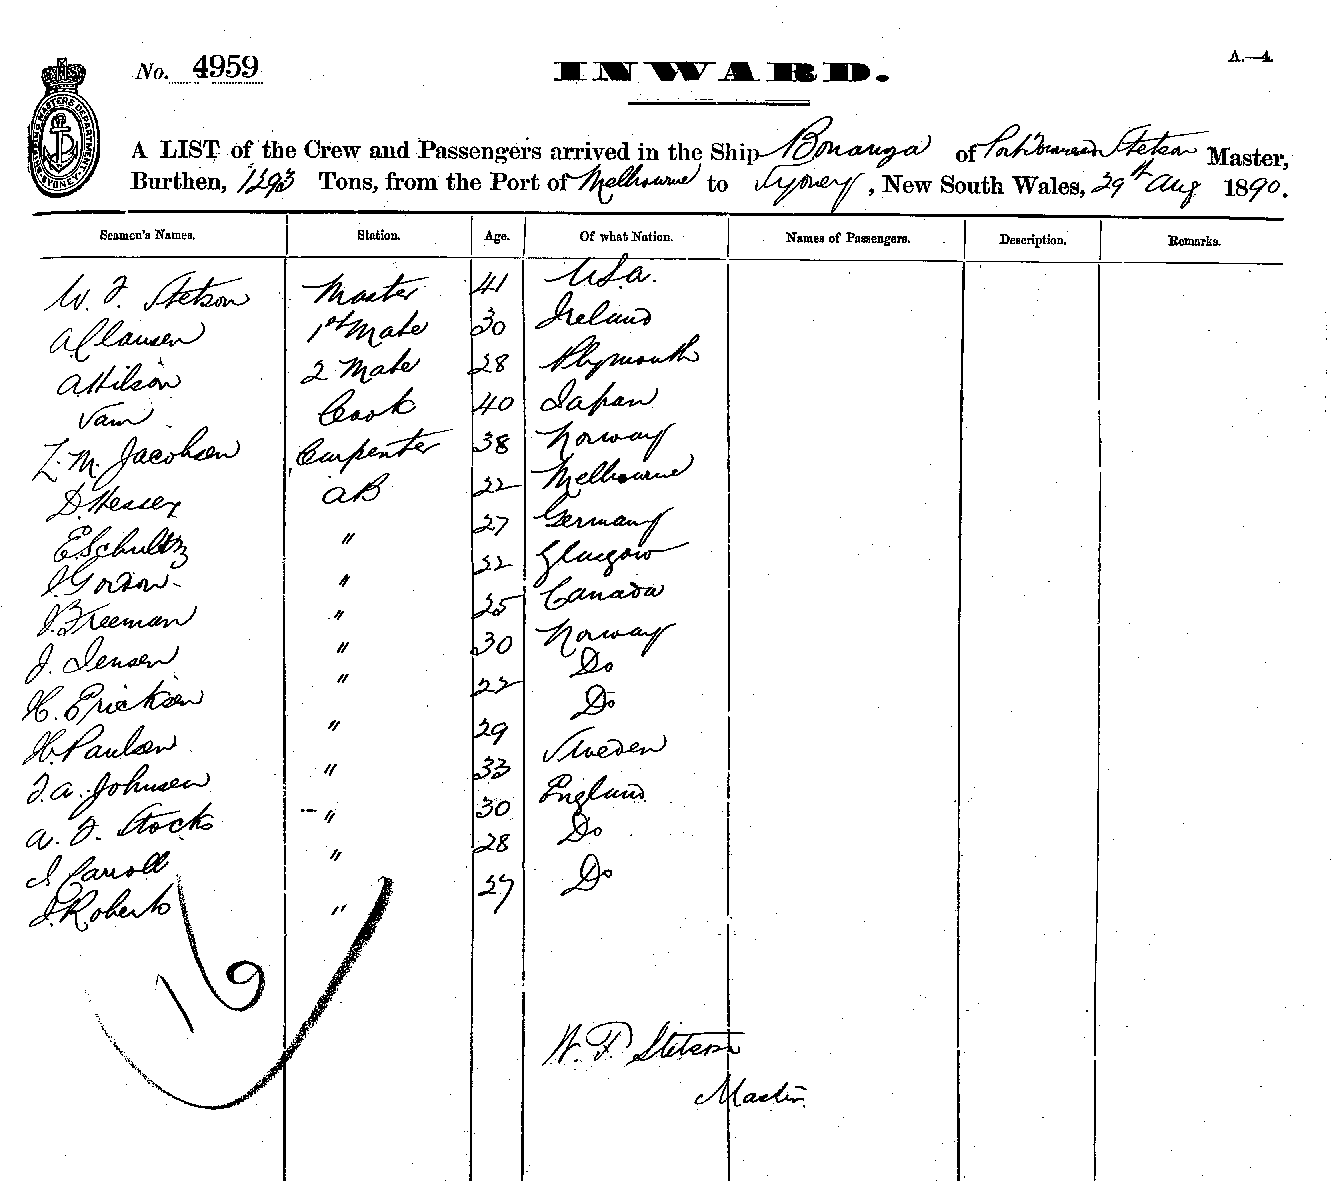 No. 4959
INWARD.
A.—4.
A LIST of the Crew and Passengers arrived in the Ship Bonanza of Stetson Master,
Burthen, 1293 Tons, from the Port of Melbourne to Sydney, New South Wales, 29th Aug 1890.
Seamen's Names. Station. Age. Of what Nation. Names of Passengers. Description. Remarks.
W. F. Stetson Master 41 U.S.A.
A Clausen 1st Mate 30 Ireland
A Hilson 2 Mate 28 Plymouth
Vam Cook 40 Japan
L. M. Jacobsen Carpenter 38 Norway
D. Hessey AB 22 Melbourne
E. Schultz " 27 Germany
J Gordon " 22 Glasgow
J. Freeman " 25 Canada
J. Jensen " 30 Norway
H. Ericksen " 22 Do
H. Paulsen " 29 Do
F. A. Johnsen " 33 Sweden
A. F. Stocks " 30 England
J Carroll " 28 Do
J. Roberts " 27 Do
16
W. F. Stetson
Master